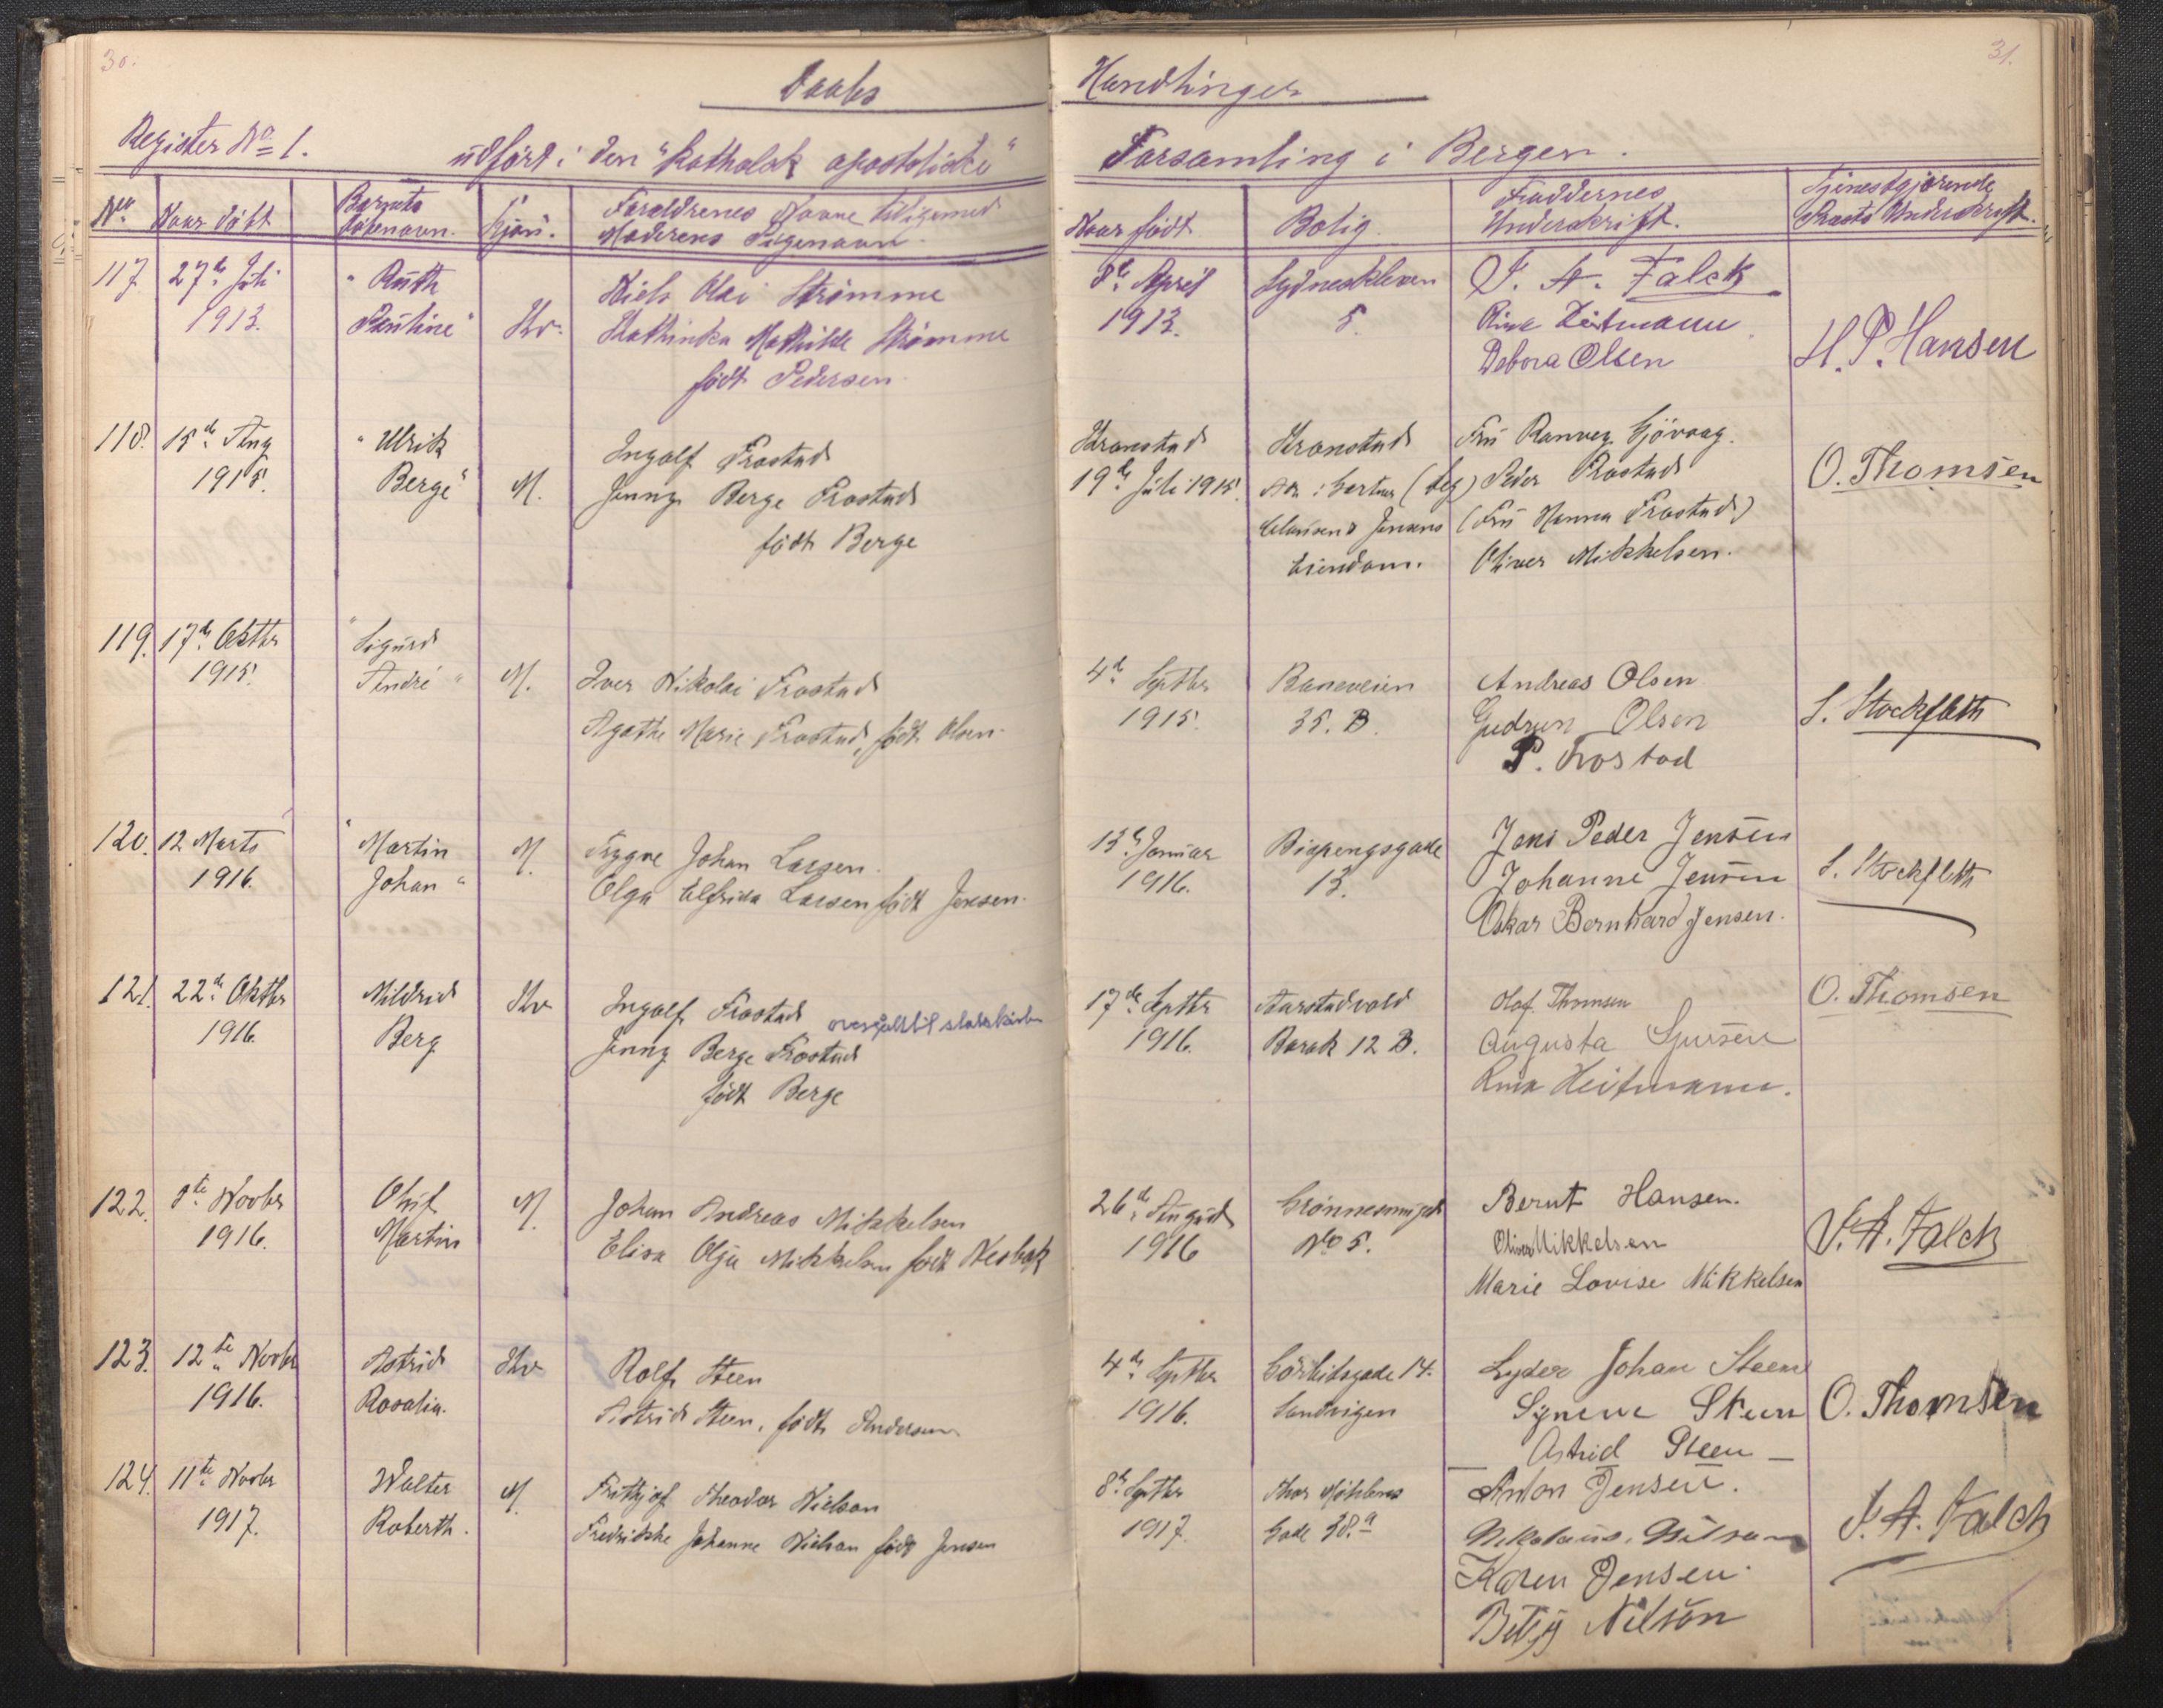 30.
Daabs
Register No 1.
udført i den "Katholsk apostoliske"
No
Naar døbt
Barnets
døbenavn.
Kjøn.
Forældrenes Navne tilligemed
Moderens Pigenavn
117.
27de Juli
1913.
"Ruth
Pauline"
Kv.
Niels Olai Strømme
Kathinka Mathilde Strømme
født Pedersen
118.
15de Aug
1915.
"Ulrik
Berge"
M.
Ingolf Frostad
Jenny Berge Frostad
født Berge
119.
17de Oktbr
1915.
"Sigurd
André"
M.
Iver Nikolai Frostad
Agathe Marie Frostad, født Olsen
120.
12 Marts
1916.
"Martin
Johan"
M.
Trygve Johan Larsen.
Olga Elfrida Larsen født Jensen.
121.
22de Oktbr
1916.
Mildrid
Berg
Kv
Ingolf Frostad
overgått til statskirken
Jenny Berge Frostad
født Berge
122.
Novbr
1916.
Oluf
Martin
M.
Johan Andreas Mikkelsen
Elisa Olga Mikkelsen født
123.
12te Novbr
1916.
Astrid
Rosalia.
Kv
Rolf Steen
Astrid Steen, født Andersen
124.
11te Novbr
1917.
Walter
Roberth.
M.
Frithjof Theodor Nielson
Fredrikke Johanne Nielson født Jensen
31.
Handlinger
Forsamling i Bergen.
Naar født
Bolig
Faddernes
Underskrift.
Tjenestgjørende
Præsts Underskrift.
8de April
1913.
Sydneskleven
5.
J. A. Falck
Heitmann
Debora Olsen
H. P. Hansen
Kronstad
19de Juli 1915.
Kronstad
Gartner
Clausens Jensens
Eiendom.
Frü Ranveg Gjövaag.
Peder Frostad
(Frü Hanna Frostad)
Oliver Mikkelsen.
O. Thomsen
4de Septbr
1915.
Baneveien
35. B.
Andreas Olsen
Gudrun Olsen
P. Frostad
S. Stockfleth
13de Januar
1916.
13.
Jens Peder Jensen
Johanne Jensen
Oskar Bernhard Jensen.
S. Stockfleth
17de Septbr
1916.
Aarstadvold
Barak 12 B.
Olof Thomsen
Augusta
Heitmann.
O. Thomsen
26de August
1916
No 5.
Bernt Hansen.
Oliver Mikkelsen
Marie Lovise Mikkelsen
J. A. Falck
4de Septbr
1916.
14.
Sandvigen
Lyder Johan Steen
Syneve Steen
Astrid Steen
O. Thomsen
8de Septbr
1917.
Thor Møhlens
Gade 38.a
Anton Jensen.
Karen Jensen
Betzy Nilson
J. A. Falck